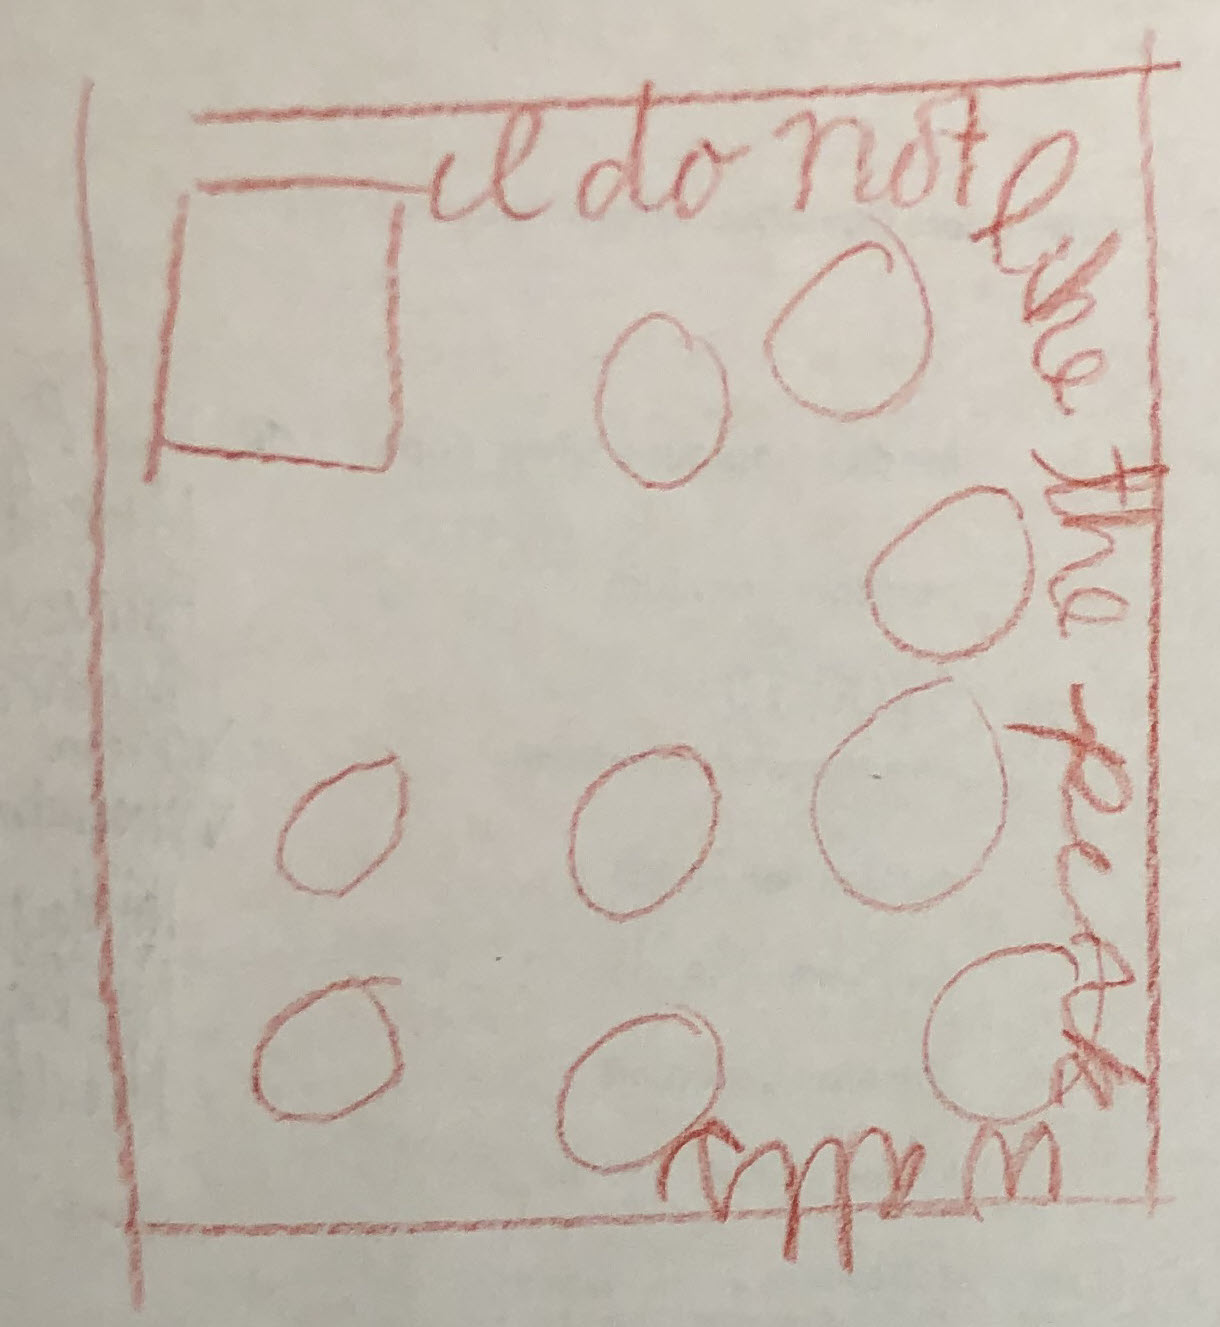 I do not
like the
walls